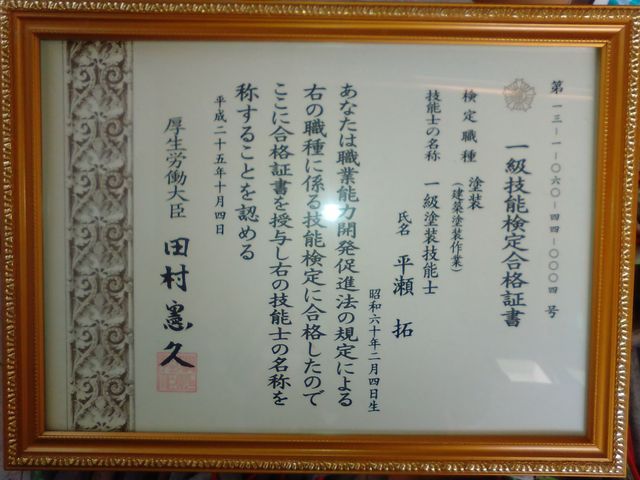 第一三-一-〇六〇-四四-〇〇〇四号
一級技能検定合格証書
検定職種 塗装
(建築塗装作業)
技能士の名称 一級塗装技能士
氏名 平瀬拓
昭和六十年二月四日生
あなたは職業能力開発促進法の規定による
右の職種に係る技能検定に合格したので
ここに合格証書を授与し右の技能士の名称を
称することを認める
平成二十五年十月四日
厚生労働大臣 田村憲久